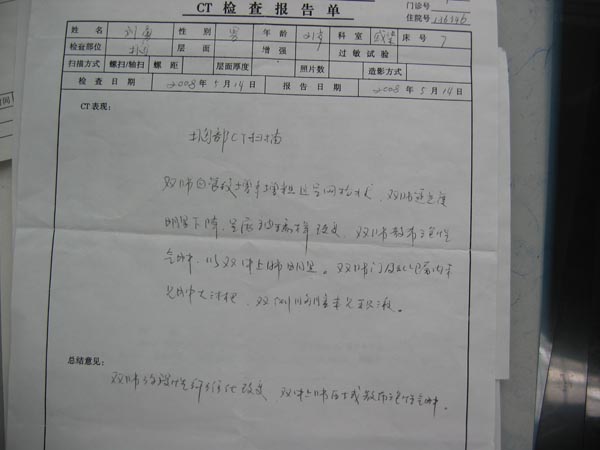 CT 检 查 报 告 单
门诊号
住院号 236946
姓 名 刘勇 性 别 男 年 龄 21岁 科 室 床 号 7
检查部位 胸 层 面 增 强 过敏试验
扫描方式 螺扫/轴扫 螺 距 层面厚度 照片数 造影方式
检 查 日 期 2008年 5月 14日 报 告 日 期 2008年 5月 14日
CT表现：
胸部CT扫描
双肺血管纹增多增粗呈网格状，双肺透过度
明显下降，呈磨玻璃样改变，双肺散布
气肿，以双上肺明显。双肺门及纵隔内未
见肿大淋巴，双侧胸膜未见积液。
总结意见：
双肺 纤维化改变，双上肺 散布 气肿。